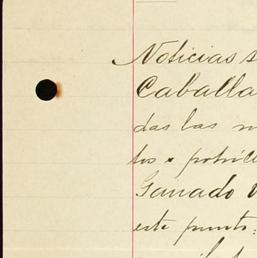 Noticias s
Caballa
das las m
tos o potrill
Ganado v
este punto: